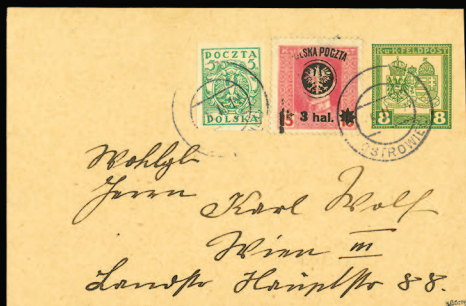 POCZTA
5 5
POLSKA
POLSKA POCZTA
3 hal.
K.u.K. FELDPOST
8 8
OSTROWIE
Wohlgb
Herrn
Karl Wolf
Wien III
Landstr Hauptstr 88.